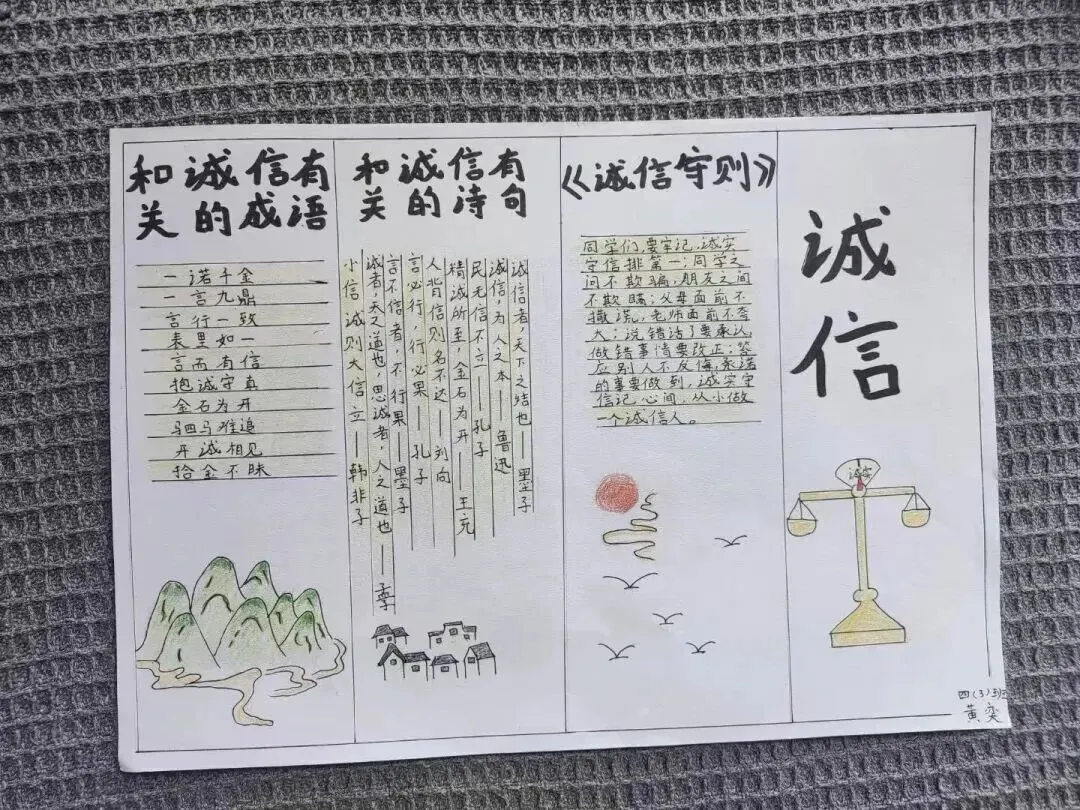 和诚信有
关的成语
一诺千金
一言九鼎
言行一致
表里如一
言而有信
抱诚守真
金石为开
驷马难追
开诚相见
拾金不昧
和诚信有
关的诗句
诚信者，天下之结也——墨子
诚信，为人之本——鲁迅
民无信不立——孔子
精诚所至，金石为开——王充
人背信则名不达——刘向
言必行，行必果——孔子
言不信者，不行果——墨子
诚者，天之道也，思诚者，人之道也——孟子
小信诚则大信立——韩非子
《诚信守则》
同学们，要牢记，诚实
守信排第一；同学之
间不欺骗，朋友之间
不欺瞒；父母面前不
撒谎，老师面前不夸
大；说错话了要承认，
做错事情要改正；答
应别人不反悔，承诺
的事要做到，诚实守
信记心间，从小做
一个诚信人。
诚
信
诚实
四(3)班
黄奕